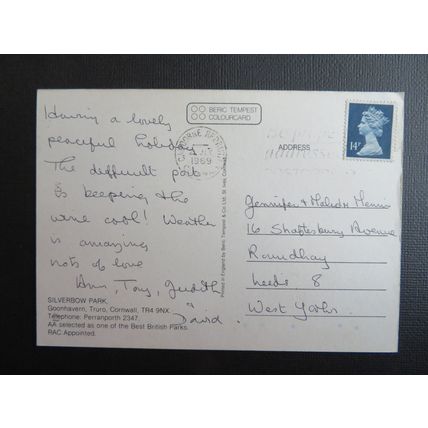 BERIC TEMPEST
COLOURCARD
Having a lovely
peaceful holiday
The difficult part
is keeping the
wine cool! Weather
is amazing
lots of love
Ann, Tony, Judith
" David
SILVERBOW PARK
Goonhavern, Truro, Cornwall, TR4 9NX
Telephone: Perranporth 2347.
AA selected as one of the Best British Parks.
RAC Appointed.
Printed in England by Beric Tempest & Co. Ltd. St. Ives, Cornwall
CAMBORNE REDRUTH
1989
ADDRESS
14P
Jennifer &
16 Shaftesbury Avenue
Roundhay
Leeds. 8
West Yorks.